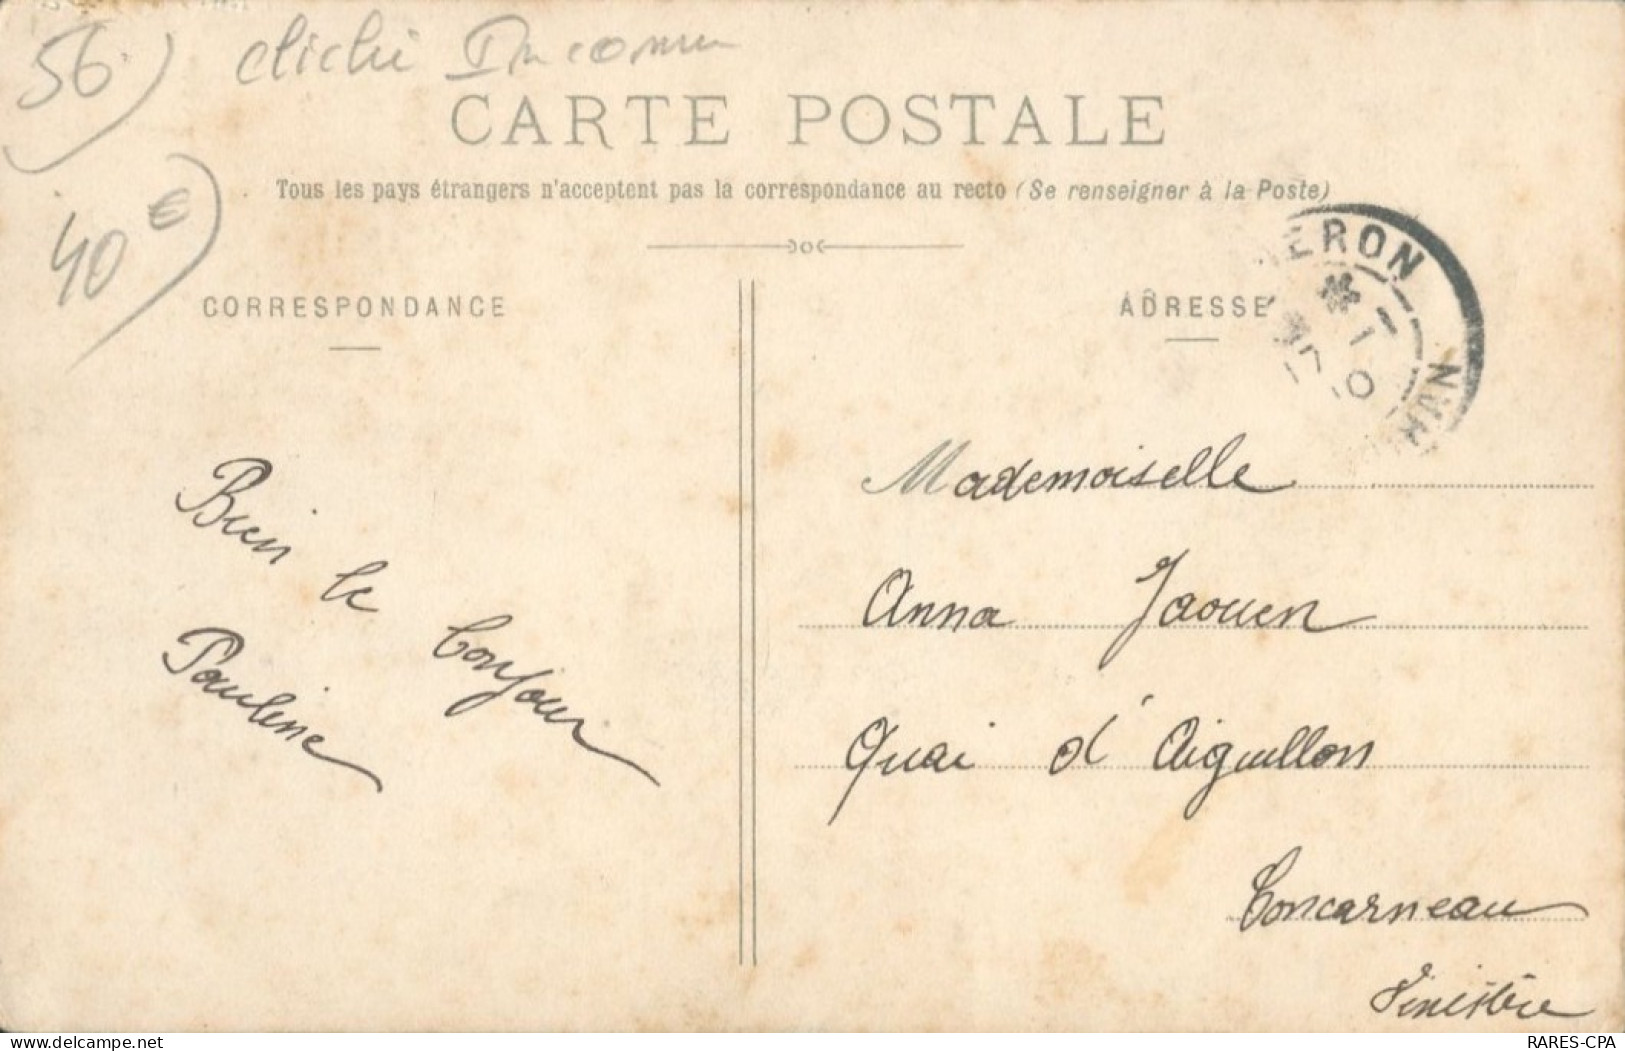 56)
cliché Inconnu
40€)
CARTE POSTALE
Tous les pays étrangers n'acceptent pas la correspondance au recto (Se renseigner à la Poste)
CORRESPONDANCE
ADRESSE
ERON
Bien le bonjour
Pauline
Mademoiselle
Anna Jaouen
Quai d'Aiguillon
Concarneau
Finistère
delcampe.net
RARES-CPA